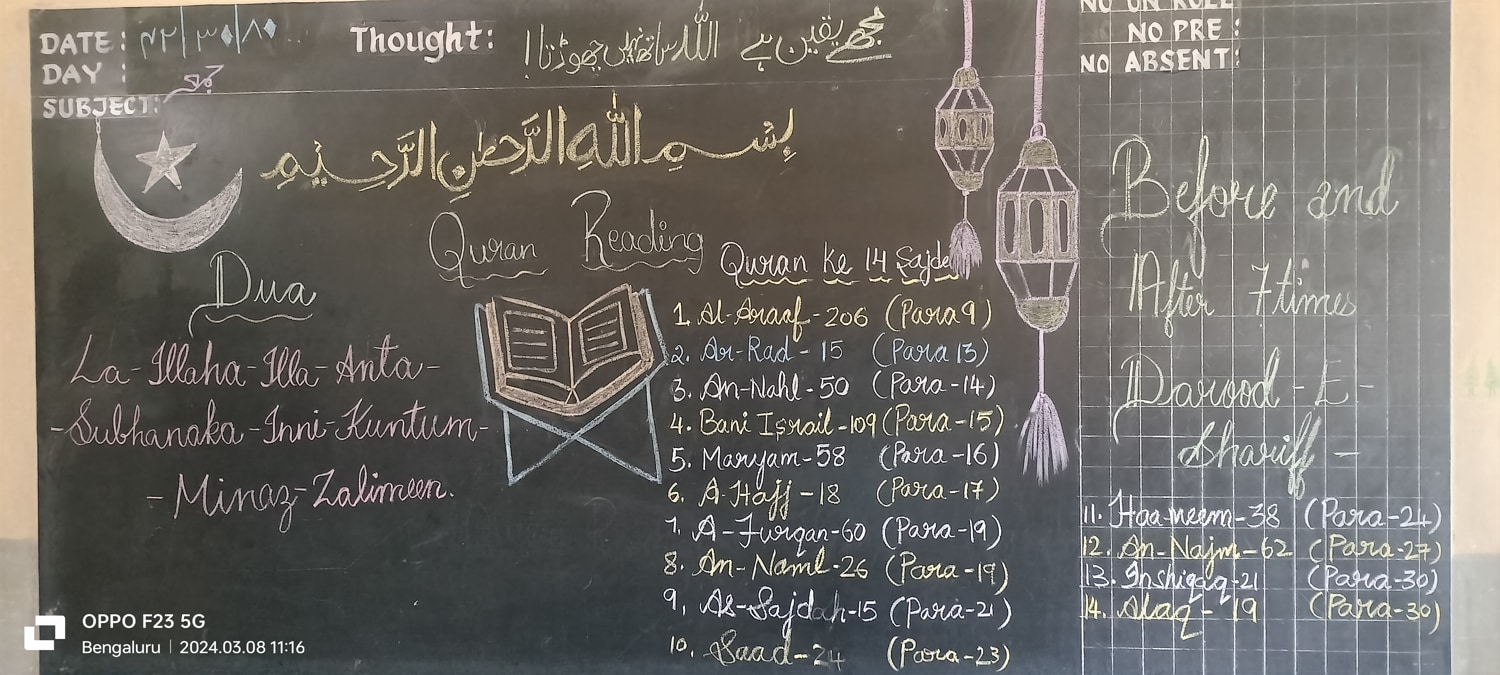 DATE: ٨٠/٣٠/٢٢
Thought: مجھے یقین ہے اللہ ساتھ نہیں چھوڑتا!
DAY :
SUBJECT:
بِسْمِ اللهِ الرَّحْمٰنِ الرَّحِيْمِ
Quran Reading
Dua
La-Illaha-Illa-Anta-
-Subhanaka-Inni-Kuntum-
-Minaz-Zalimeen.
Quran Ke 14 Sajde
1. Al-Araaf-206 (Para 9)
2. Ar-Rad-15 (Para 13)
3. An-Nahl-50 (Para-14)
4. Bani Israil-109 (Para-15)
5. Maryam-58 (Para-16)
6. A-Hajj-18 (Para-17)
7. A-Furqan-60 (Para-19)
8. An-Naml-26 (Para-19)
9, As-Sajdah-15 (Para-21)
10. Saad-24 (Para-23)
NO ON ROLL
NO PRE :
NO ABSENT:
Before and
After 7times
Darood-E-
Shariff-
11. Haa-meem-38 (Para-24)
12. An-Najm-62 (Para-27)
13. Inshiqaq-21 (Para-30)
14. Alaq-19 (Para-30)
OPPO F23 5G
Bengaluru | 2024.03.08 11:16